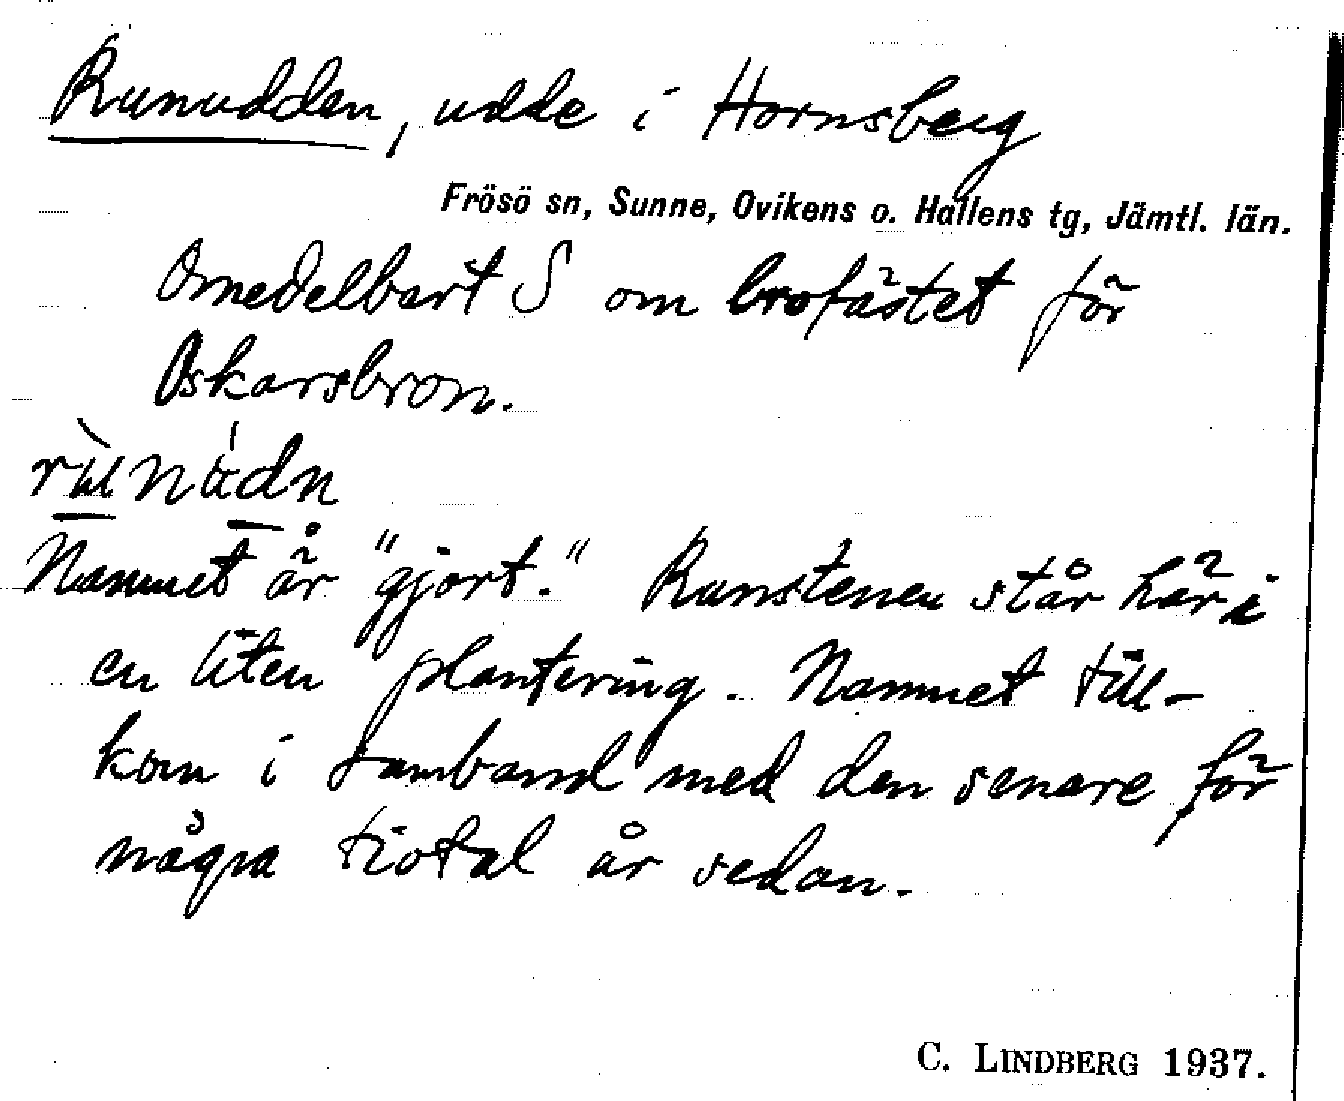 Runudden, udde i Hornsberg
Frösö sn, Sunne, Ovikens o. Hallens tg, Jämtl. län.
Omedelbart S om brofästet för
Oskarsbron.
Namnet är "gjort." Runstenen står här i
en liten plantering. Namnet till-
kom i samband med den senare för
några tiotal år sedan.
C. LINDBERG 1937.